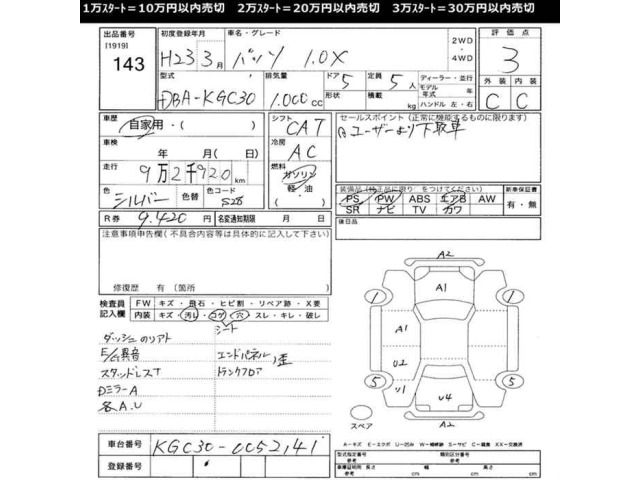 1万スタート=10万円以内売切 2万スタート=20万円以内売切 3万スタート=30万円以内売切
出品番号
[1919]
143
初度登録年月
H23 3月
車名・グレード
パッソ 1.0X
2WD
・
4WD
評価点
3
型式
DBA-KGC30
排気量
1,000cc
ドア 5
形状
定員 5人
積載 kg
ディーラー・並行
モデル
年式 年
ハンドル 左・右
外装 内装
C C
車歴
自家用・( )
シフト
CAT
セールスポイント(正常に機能するものに限ります)
ユーザーより下取車
車検
年 月(日)
冷房
AC
走行
9万2千920km
燃料
ガソリン
軽・油
( )
色
シルバー
色替
色コード
S28
装備品(純正品に限り○をつけてください)
PS PW ABS エアB AW
SR ナビ TV カワ
新車保証書
有・無
R券 9,420円
名変通知期限 月 日
後日品
注意事項申告欄(不具合内容等は具体的に記入して下さい)
修復歴 有(箇所 )
検査員
記入欄
FW キズ・飛石・ヒビ割・リペア跡・X要
内装 キズ・汚レ・コゲ・穴・スレ・キレ・破レ
シート
ダッシュのリアト
E/G異音
スタッドレスT
Dミラー A
各A.U
エンドパネル
トランクフロア
歪
A2
A1
1
1
A1
U2
5
5
U1
U4
A2
スペア
A-キズ E-エクボ U-凹み W-補修跡 S-サビ C-腐食 XX-交換済
車台番号 KGC30-0052141
登録番号
型式指定番号
参考
類別区分番号
参考
車庫証明用 長さ
参考 cm
幅 cm
高さ cm